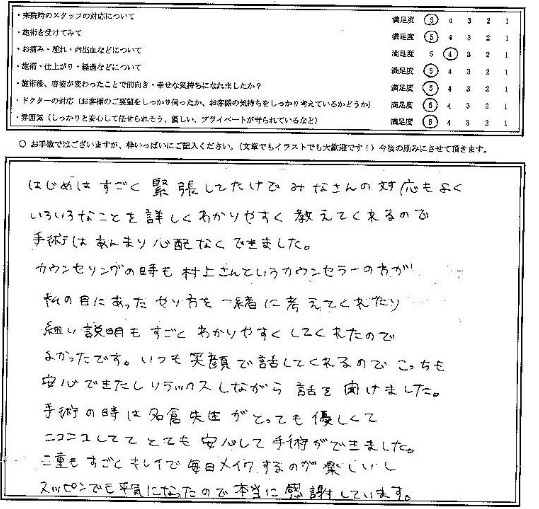 ・来院時のスタッフの対応について 満足度 5 4 3 2 1
・施術を受けてみて 満足度 5 4 3 2 1
・お痛み・腫れ・内出血などについて 満足度 5 4 3 2 1
・施術・仕上がり・経過などについて 満足度 5 4 3 2 1
・施術後、容姿が変わったことで前向き・幸せな気持ちになれましたか? 満足度 5 4 3 2 1
・ドクターの対応(お客様のご要望をしっかり伺ったか、お客様の気持ちをしっかり考えているかどうか) 満足度 5 4 3 2 1
・雰囲気(しっかりと安心して任せられそう、優しい、プライベートが守られているなど) 満足度 5 4 3 2 1
○ お手数ではございますが、枠いっぱいにご記入ください。(文章でもイラストでも大歓迎です!)今後の励みにさせて頂きます。
はじめはすごく緊張してたけどみなさんの対応もよく
いろいろなことを詳しくわかりやすく教えてくれるので
手術はあんまり心配なくできました。
カウンセリングの時も村上さんというカウンセラーの方が
私の目にあったやり方を一緒に考えてくれたり
細い説明もすごくわかりやすくしてくれたので
よかったです。いつも笑顔で話してくれるのでこっちも
安心できたしリラックスしながら話を聞けました。
手術の時は名倉先生がとっても優しくて
ニコニコしててとても安心して手術ができました。
二重もすごくキレイで毎日メイクするのが楽しいし
スッピンでも平気になったので本当に感謝しています。